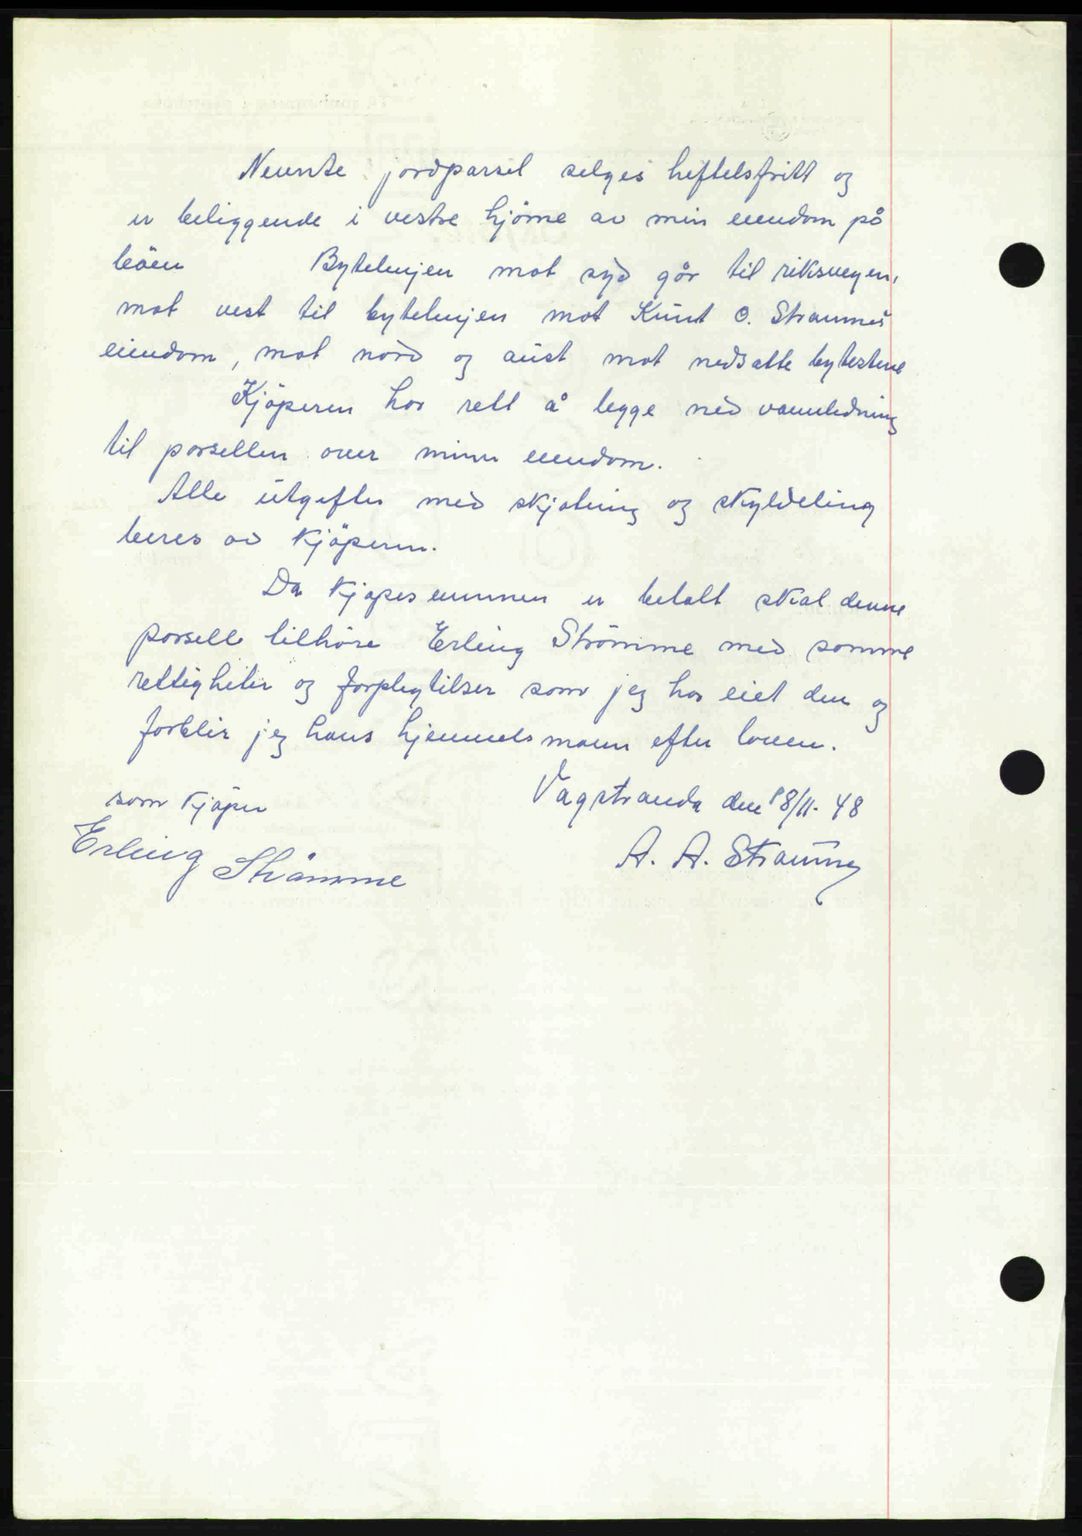 Nevnte jordparsel selges heftelsfritt og
er beliggende i vestre hjörne av min eiendom på
böen Bytelinjen mot syd går til riksvegen,
mot vest til bytelinjen mot Knut O. Straumes
eiendom, mot nord og aust mot nedsatte bytestene
Kjöperen har rett å legge ned vannledning
til parsellen over minn eiendom.
Alle utgifter med skjöting og skyldeling
beres av kjöperen.
Da kjöpesummen er betalt skal denne
parsell tilhöre Erling Strömme med samme
rettigheter og forplegtelser som jeg har eiet den og
forblir jeg hans hjemmelsmann efter loven.
som kjöper Vågstranda den 18/11-48
Erling Strömme A. A. Straume